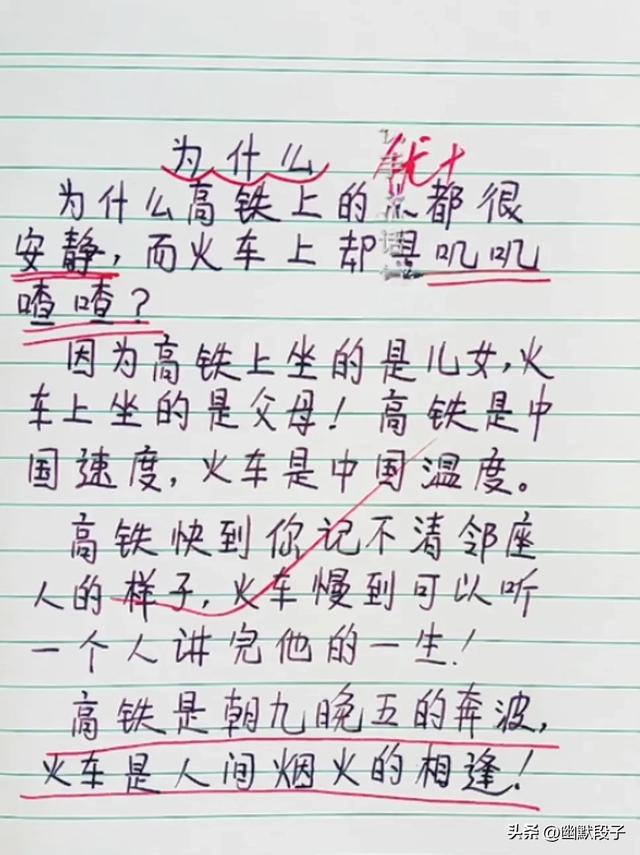 为什么 优+
为什么高铁上的都很
安静,而火车上却叽叽
喳喳?
因为高铁上坐的是儿女,火
车上坐的是父母!高铁是中
国速度,火车是中国温度。
高铁快到你记不清邻座
人的样子,火车慢到可以听
一个人讲完他的一生!
高铁是朝九晚五的奔波,
火车是人间烟火的相逢!
头条 @幽默段子